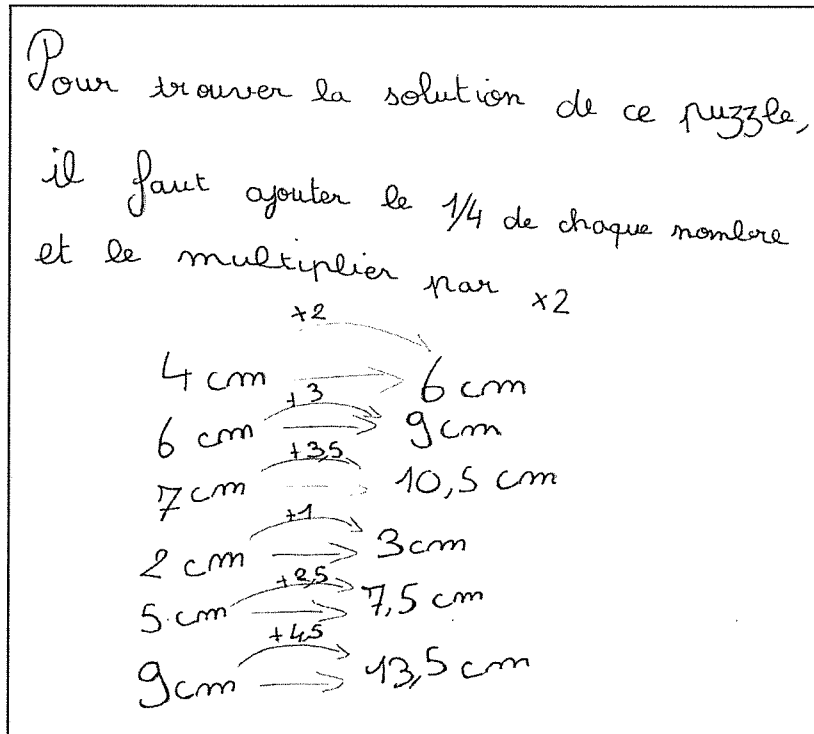 Pour trouver la solution de ce puzzle,
il faut ajouter le 1/4 de chaque nombre
et le multiplier par ×2
+2
4 cm → 6 cm
+3
6 cm → 9 cm
+3,5
7 cm → 10,5 cm
+1
2 cm → 3 cm
+2,5
5 cm → 7,5 cm
+4,5
9 cm → 13,5 cm